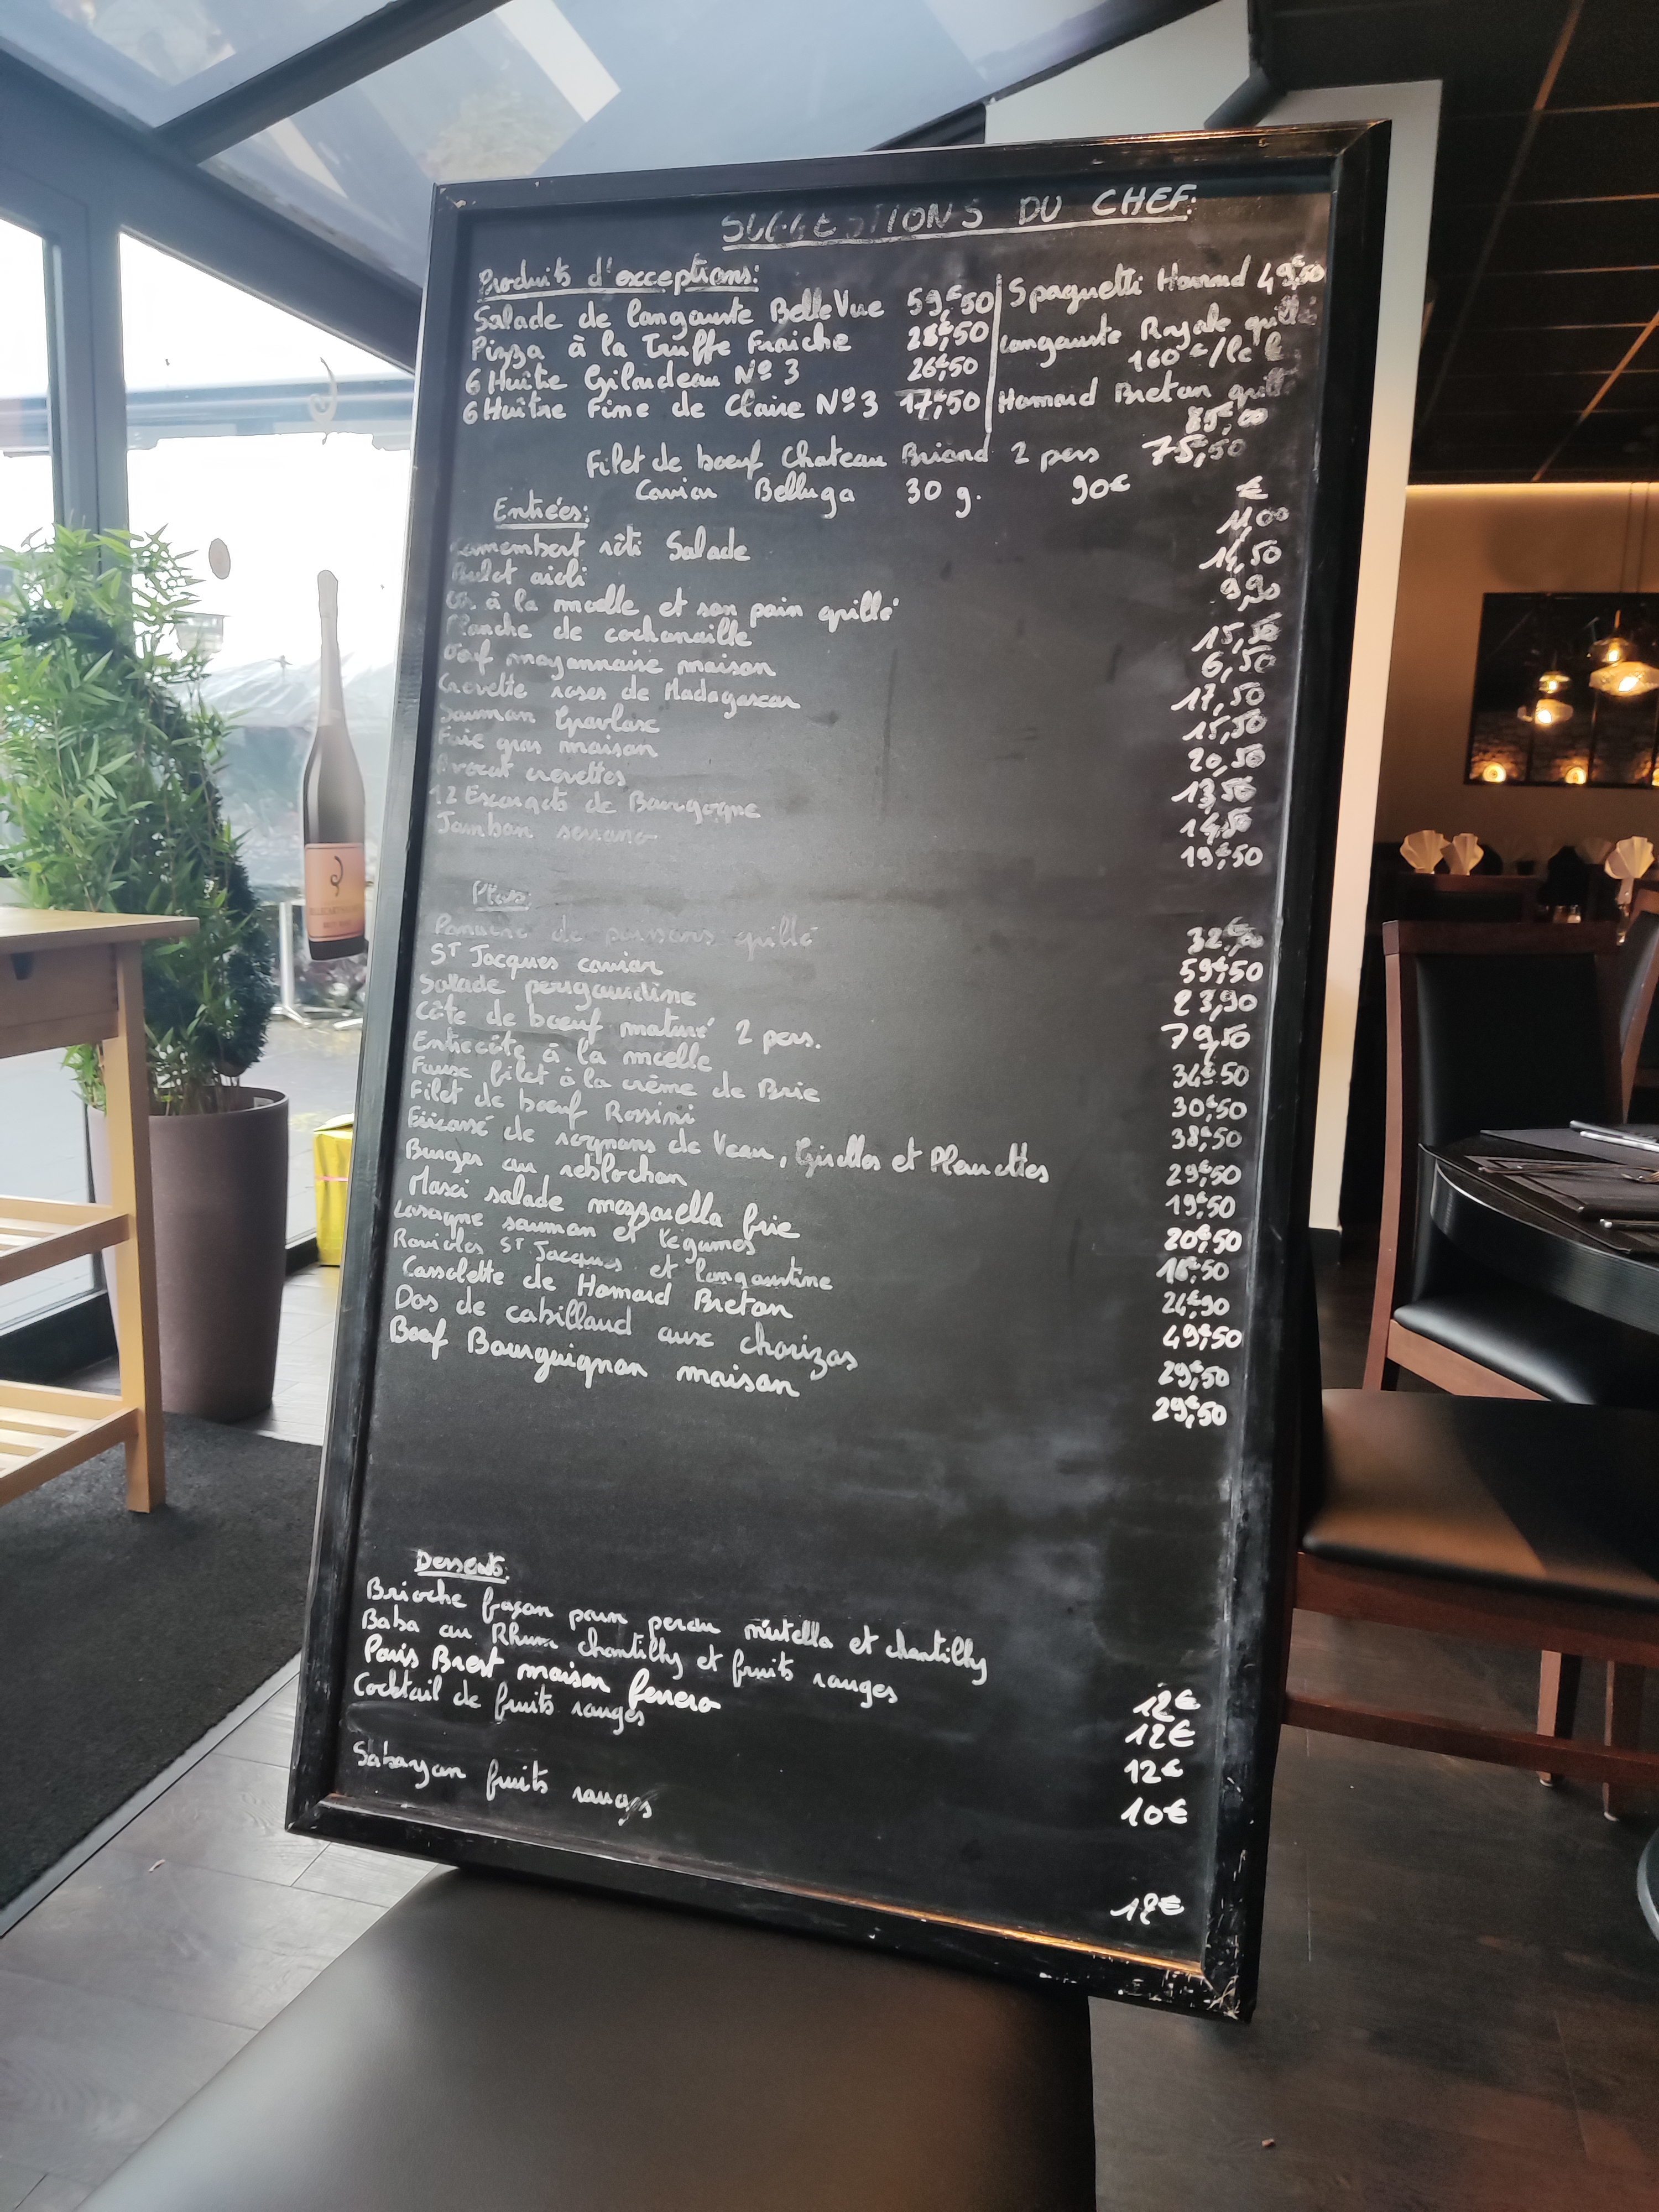 SUGGESTIONS DU CHEF:
Produits d'exceptions:
Salade de langouste BelleVue 59€,50
Pizza à la Truffe Fraiche 28€,50
6 Huître Gilardeau Nº3 26€,50
6 Huître Fine de Claire Nº3 17€,50
Spaguetti Homard 49€,50
Langouste Royale grillé
160€/le k
Homard Breton grillé
85€,00
Filet de bœuf Chateau Briand 2 pers 75€,50
Caviar Belluga 30 g. 90€
Entrées: €
Camembert rôti Salade 11,00
Bulot aioli 14,50
Os à la moelle et son pain grillé 9,90
Planche de cochonaille 15,50
Oeuf mayonnaise maison 6,50
Crevette roses de Madagascar 17,50
Saumon Gravlax 15,50
Foie gras maison 20,50
Avocat crevettes 13,50
12 Escargots de Bourgogne 14,50
Jambon serrano 19€,50
Plats:
Panaché de poissons grillé
ST Jacques caviar 59€,50
Salade perigourdine 23,90
Côte de bœuf maturé 2 pers. 79,50
Entrecôte à la moelle 34€,50
Faux filet à la crème de Brie 30€,50
Filet de bœuf Rossini 38€,50
Fricassé de rognons de Veau, Girolles et Pleurottes 29€,50
Burger au reblochon 19€,50
Maxi salade mozzarella frie 20€,50
Lasagne saumon et légumes 18€,50
Ravioles ST Jacques et langoustine 24€,90
Cassolette de Homard Breton 49€,50
Dos de cabillaud aux chorizos 29€,50
Boeuf Bourguignon maison 29€,50
Desserts:
Brioche façon pain perdu nutella et chantilly 12€
Baba au Rhum chantilly et fruits rouges 12€
Paris Brest maison ferrero 12€
Cocktail de fruits rouges 10€
Sabayon fruits rouges 12€